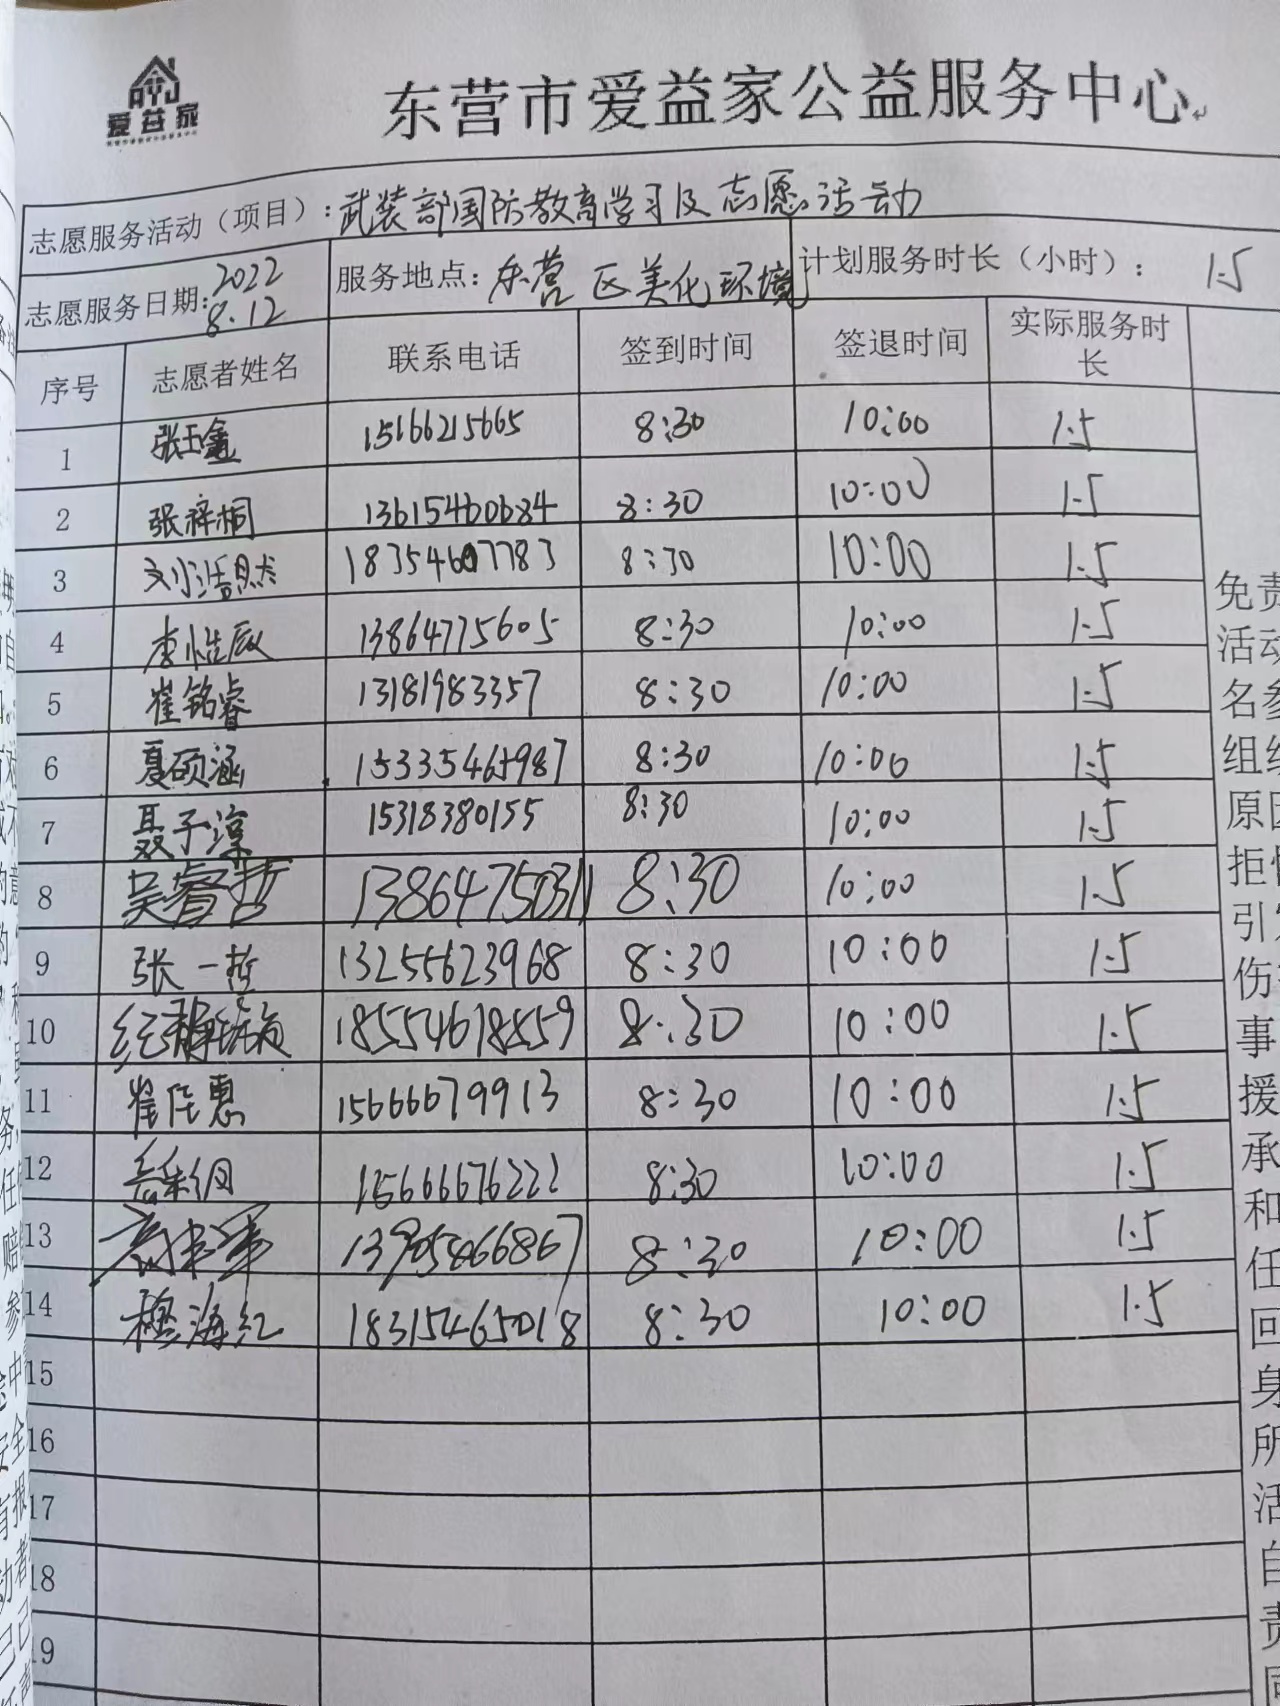 爱益家
东营市爱益家公益服务中心
志愿服务活动（项目）：武装部国防教育学习及志愿活动
志愿服务日期：2022 8.12 服务地点：东营区美化环境 计划服务时长（小时）： 1.5
序号 志愿者姓名 联系电话 签到时间 签退时间 实际服务时长
1 张玉鑫 15166215665 8:30 10:00 1.5
2 张梓桐 13615460684 8:30 10:00 1.5
3 刘浩然 18354607783 8:30 10:00 1.5
4 李 13864775605 8:30 10:00 1.5
5 崔铭睿 13181983357 8:30 10:00 1.5
6 夏硕涵 15335465987 8:30 10:00 1.5
7 聂子凉 15318380155 8:30 10:00 1.5
8 吴睿哲 13864750311 8:30 10:00 1.5
9 张一哲 13255623968 8:30 10:00 1.5
10 18554618559 8:30 10:00 1.5
11 崔佳惠 15666679913 8:30 10:00 1.5
12 15666676222 8:30 10:00 1.5
13 8:30 10:00 1.5
14 穆海红 18315465018 8:30 10:00 1.5
15
16
17
18
19
免责
活动
名参
组织
原因
拒
引
伤
事
援
承
和
任
回
身
所
活
自
责